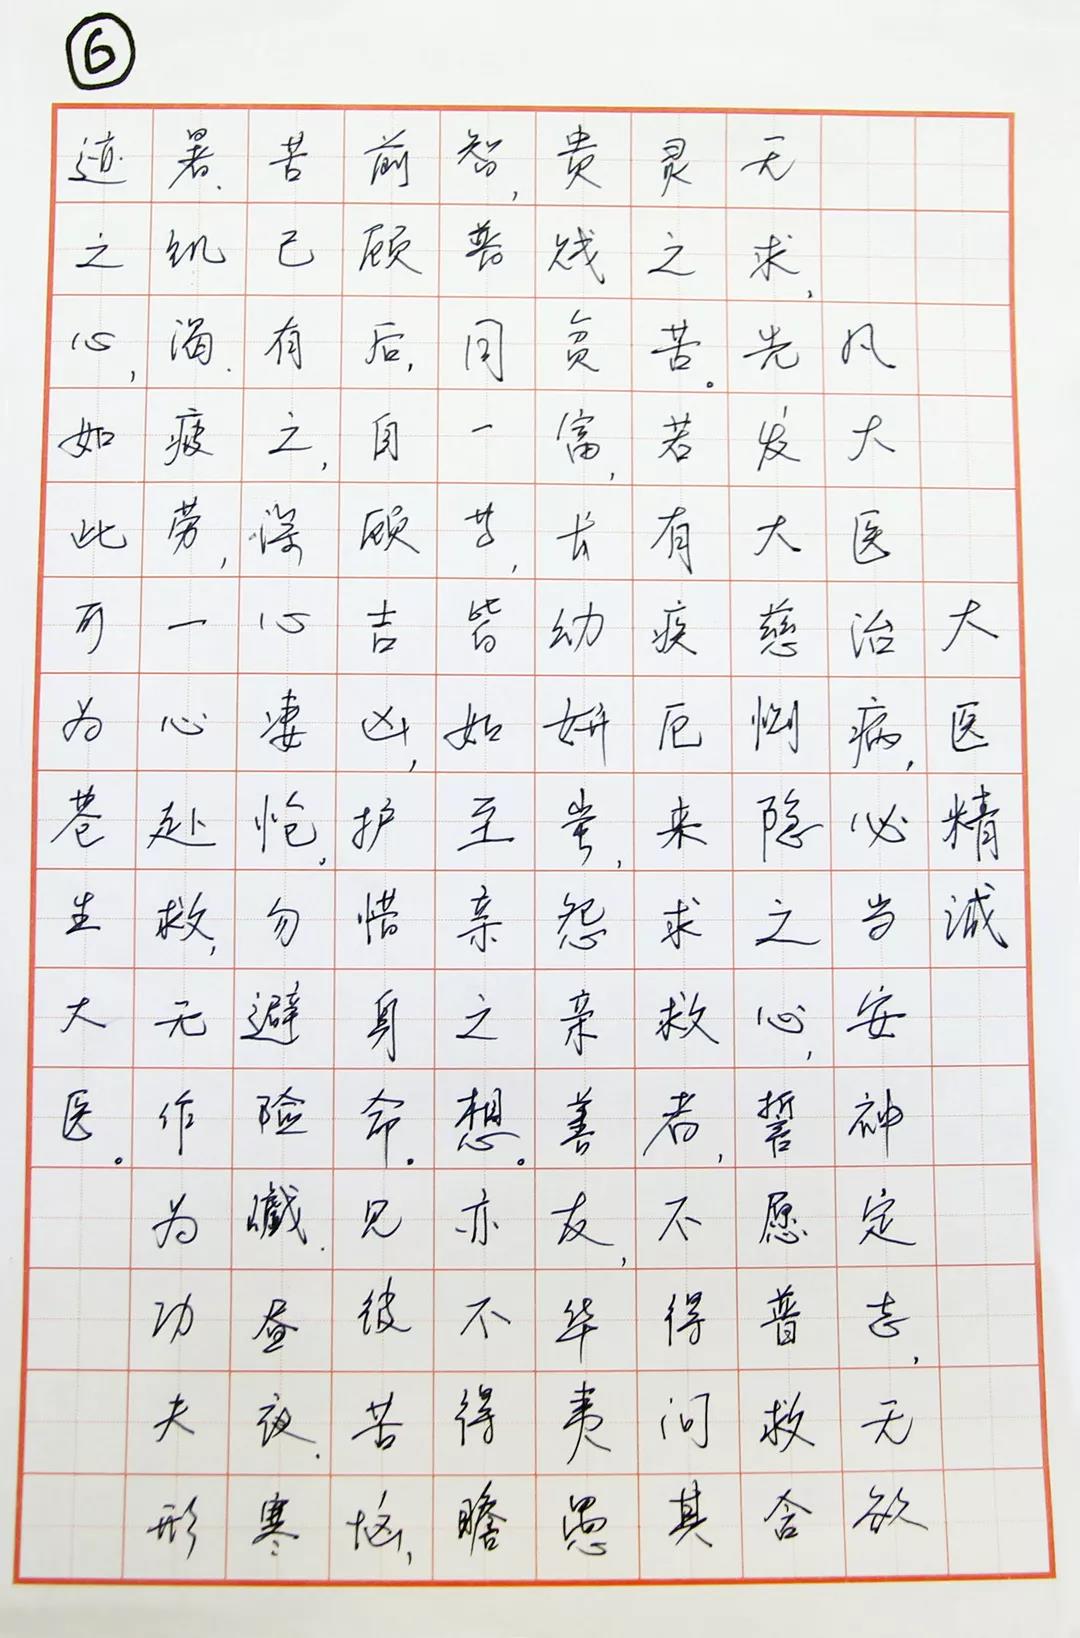 ⑥
大医精诚
凡大医治病,必当安神定志,无欲
无求,先发大慈恻隐之心,誓愿普救含
灵之苦。若有疾厄来求救者,不得问其
贵贱贫富,长幼妍蚩,怨亲善友,华夷愚
智,普同一等,皆如至亲之想。亦不得瞻
前顾后,自顾吉凶,护惜身命。见彼苦恼,
苦己有之,深心凄怆,勿避险巇、昼夜、寒
暑、饥渴、疲劳,一心赴救,无作为功夫形
迹之心,如此可为苍生大医。